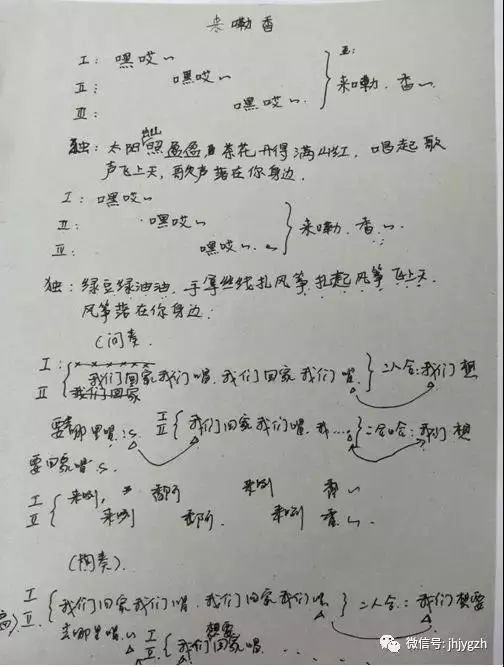 来嘞香
Ⅰ: 嘿哎~
Ⅱ: 嘿哎~
Ⅲ: 嘿哎~
来嘞. 香~
独: 太阳出山照盈盈 茶花开得满山红, 唱起歌
声飞上天, 歌声落在你身边.
Ⅰ: 嘿哎~
Ⅱ: 嘿哎~
Ⅲ: 嘿哎~
来嘞. 香~
独: 绿豆绿油油. 手拿丝线扎风筝. 扎起风筝飞上天.
风筝落在你身边.
(间奏.
Ⅰ: ×××××××
我们回家我们唱. 我们回家我们唱. 二人合: 我们想
Ⅱ 我们回家
要哪里唱: Ⅰ Ⅱ 我们回家我们唱. 我… 二人合: 我们想
要回家唱
Ⅰ 来嘞, 香阿 来嘞 香~
Ⅱ 来嘞 香阿. 来嘞 香~
(间奏).
Ⅰ Ⅱ 我们回家我们唱. 我们回家我们唱 二人合: 我们想要
去哪里唱 Ⅰ Ⅱ 我们想要回家唱
微信号: jhjygzh